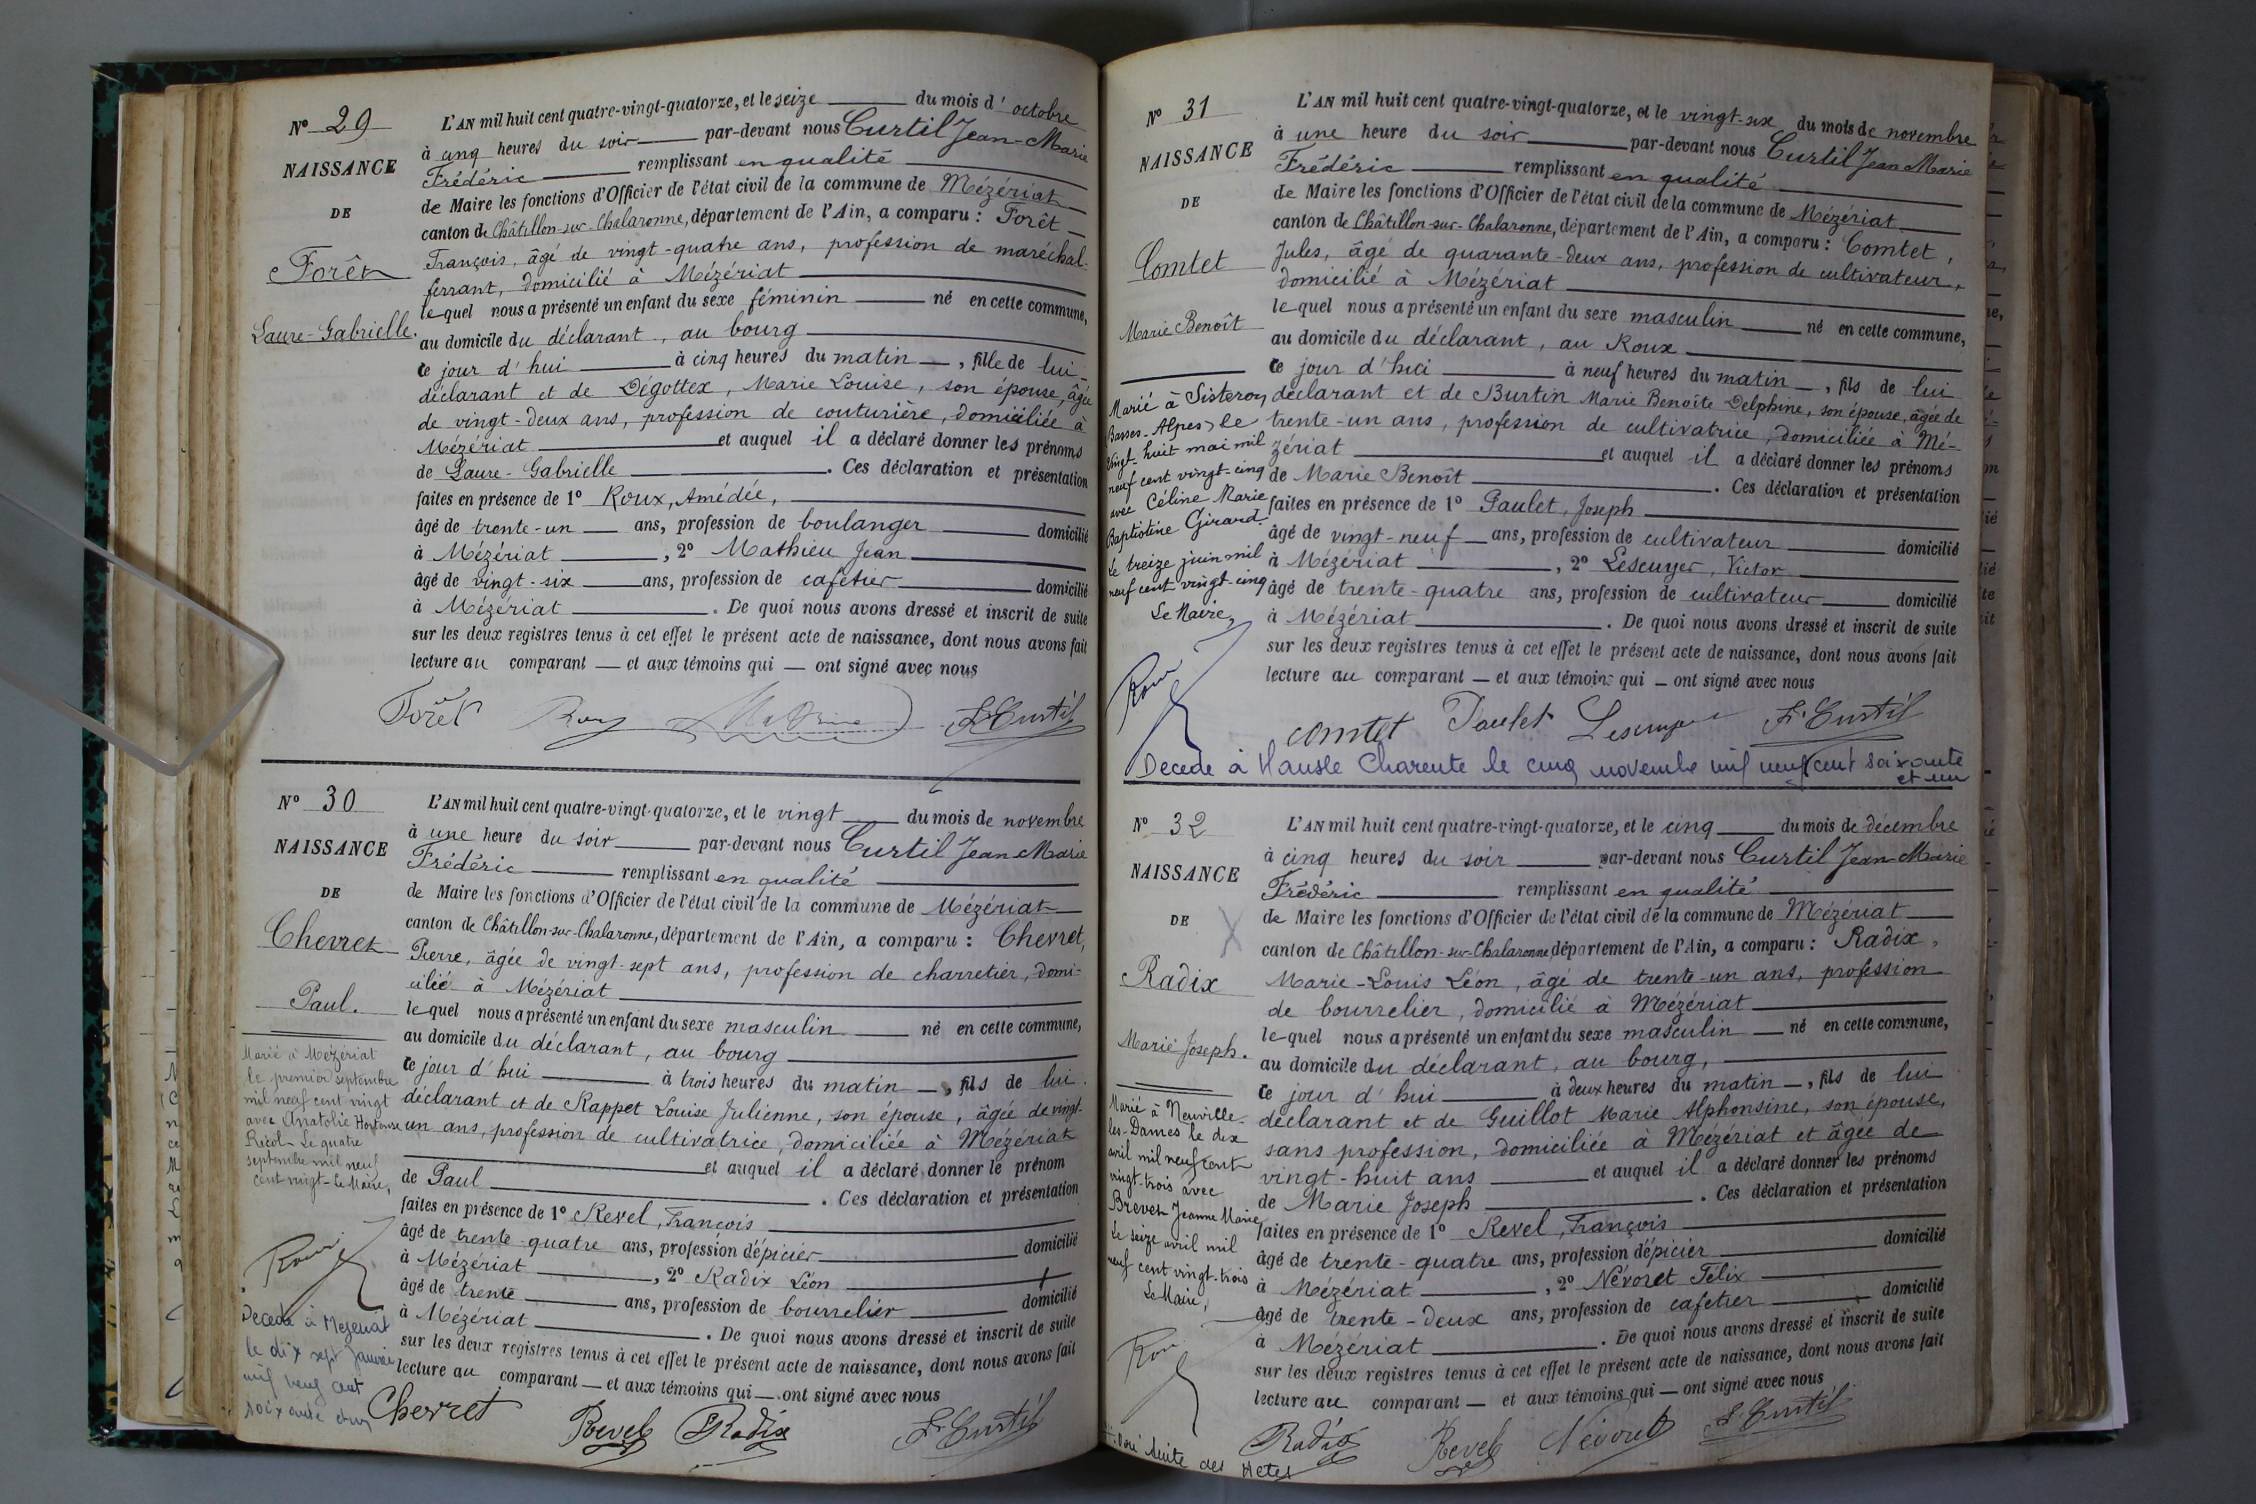 Nº 29
NAISSANCE
DE
Forêt
Laure-Gabrielle.
L'AN mil huit cent quatre-vingt-quatorze, et le seize du mois d'octobre
à cinq heures du soir par-devant nous Curtil Jean-Marie
Frédéric remplissant en qualité
de Maire les fonctions d'Officier de l'état civil de la commune de Mézériat
canton de Châtillon-sur-Chalaronne, département de l'Ain, a comparu : Forêt
François, âgé de vingt-quatre ans, profession de maréchal-
ferrant, domicilié à Mézériat
lequel nous a présenté un enfant du sexe féminin né en cette commune,
au domicile du déclarant, au bourg
ce jour d'hui à cinq heures du matin, fille de lui
déclarant et de Dégottex, Marie Louise, son épouse, âgée
de vingt-deux ans, profession de couturière, domiciliée à
Mézériat et auquel il a déclaré donner les prénoms
de Laure-Gabrielle. Ces déclaration et présentation
faites en présence de 1º Roux, Amédée,
âgé de trente-un ans, profession de boulanger domicilié
à Mézériat, 2º Mathieu Jean
âgé de vingt-six ans, profession de cafetier domicilié
à Mézériat. De quoi nous avons dressé et inscrit de suite
sur les deux registres tenus à cet effet le présent acte de naissance, dont nous avons fait
lecture au comparant — et aux témoins qui — ont signé avec nous
Forêt Roux Mathieu F. Curtil
Nº 30
NAISSANCE
DE
Chevret
Paul.
Marié à Mézériat
le premier septembre
mil neuf cent vingt
avec Anatolie Hortense
Le quatre
septembre mil neuf
cent vingt - Le Maire,
Décédé à Mézériat
le dix sept Janvier
mil neuf cent
soixante et un
L'AN mil huit cent quatre-vingt-quatorze, et le vingt du mois de novembre
à une heure du soir par-devant nous Curtil Jean-Marie
Frédéric remplissant en qualité
de Maire les fonctions d'Officier de l'état civil de la commune de Mézériat
canton de Châtillon-sur-Chalaronne, département de l'Ain, a comparu : Chevret,
Pierre, âgée de vingt-sept ans, profession de charretier, domi-
cilié à Mézériat
lequel nous a présenté un enfant du sexe masculin né en cette commune,
au domicile du déclarant, au bourg
ce jour d'hui à trois heures du matin, fils de lui
déclarant et de Rappet Louise Julienne, son épouse, âgée de vingt-
un ans, profession de cultivatrice, domiciliée à Mézériat
et auquel il a déclaré donner le prénom
de Paul. Ces déclaration et présentation
faites en présence de 1º Revel, François
âgé de trente-quatre ans, profession d'épicier domicilié
à Mézériat, 2º Radix Léon
âgé de trente ans, profession de bourrelier domicilié
à Mézériat. De quoi nous avons dressé et inscrit de suite
sur les deux registres tenus à cet effet le présent acte de naissance, dont nous avons fait
lecture au comparant — et aux témoins qui — ont signé avec nous
Chevret Revel Radix F. Curtil
Nº 31
NAISSANCE
DE
Comtet
Marie Benoît
Marié à Sisteron
Basses-Alpes, le
vingt-huit mai mil
neuf cent vingt-cinq
avec Céline Marie
Baptistine Girard.
Le treize juin mil
neuf cent vingt-cinq
Le Maire,
L'AN mil huit cent quatre-vingt-quatorze, et le vingt-six du mois de novembre
à une heure du soir par-devant nous Curtil Jean Marie
Frédéric remplissant en qualité
de Maire les fonctions d'Officier de l'état civil de la commune de Mézériat
canton de Châtillon-sur-Chalaronne, département de l'Ain, a comparu : Comtet,
Jules, âgé de quarante-deux ans, profession de cultivateur,
domicilié à Mézériat
lequel nous a présenté un enfant du sexe masculin né en cette commune,
au domicile du déclarant, au Roux
ce jour d'hui à neuf heures du matin, fils de lui
déclarant et de Burtin Marie Benoîte Delphine, son épouse, âgée de
trente-un ans, profession de cultivatrice, domiciliée à Mé-
zériat et auquel il a déclaré donner les prénoms
de Marie Benoît. Ces déclaration et présentation
faites en présence de 1º Paulet, Joseph
âgé de vingt-neuf ans, profession de cultivateur domicilié
à Mézériat, 2º Lescuyer, Victor
âgé de trente-quatre ans, profession de cultivateur domicilié
à Mézériat. De quoi nous avons dressé et inscrit de suite
sur les deux registres tenus à cet effet le présent acte de naissance, dont nous avons fait
lecture au comparant — et aux témoins qui — ont signé avec nous
comtet Paulet Lescuyer F. Curtil
Décédé à Charente le cinq novembre mil neuf cent soixante
et un
Nº 32
NAISSANCE
DE
Radix
Marie Joseph.
Marié à Neuville-
les-Dames le dix
avril mil neuf cent
vingt-trois avec
Brevet Jeanne Marie
Le seize avril mil
neuf cent vingt-trois
Le Maire,
L'AN mil huit cent quatre-vingt-quatorze, et le cinq du mois de décembre
à cinq heures du soir par-devant nous Curtil Jean-Marie
Frédéric remplissant en qualité
de Maire les fonctions d'Officier de l'état civil de la commune de Mézériat
canton de Châtillon-sur-Chalaronne, département de l'Ain, a comparu : Radix,
Marie-Louis Léon, âgé de trente-un ans, profession
de bourrelier, domicilié à Mézériat
lequel nous a présenté un enfant du sexe masculin né en cette commune,
au domicile du déclarant, au bourg,
ce jour d'hui à deux heures du matin, fils de lui
déclarant et de Guillot Marie Alphonsine, son épouse,
sans profession, domiciliée à Mézériat et âgée de
vingt-huit ans et auquel il a déclaré donner les prénoms
de Marie Joseph. Ces déclaration et présentation
faites en présence de 1º Revel, François
âgé de trente-quatre ans, profession d'épicier domicilié
à Mézériat, 2º Névoret Félix
âgé de trente-deux ans, profession de cafetier domicilié
à Mézériat. De quoi nous avons dressé et inscrit de suite
sur les deux registres tenus à cet effet le présent acte de naissance, dont nous avons fait
lecture au comparant — et aux témoins qui — ont signé avec nous
Radix Revel Névoret F. Curtil
suite des Actes